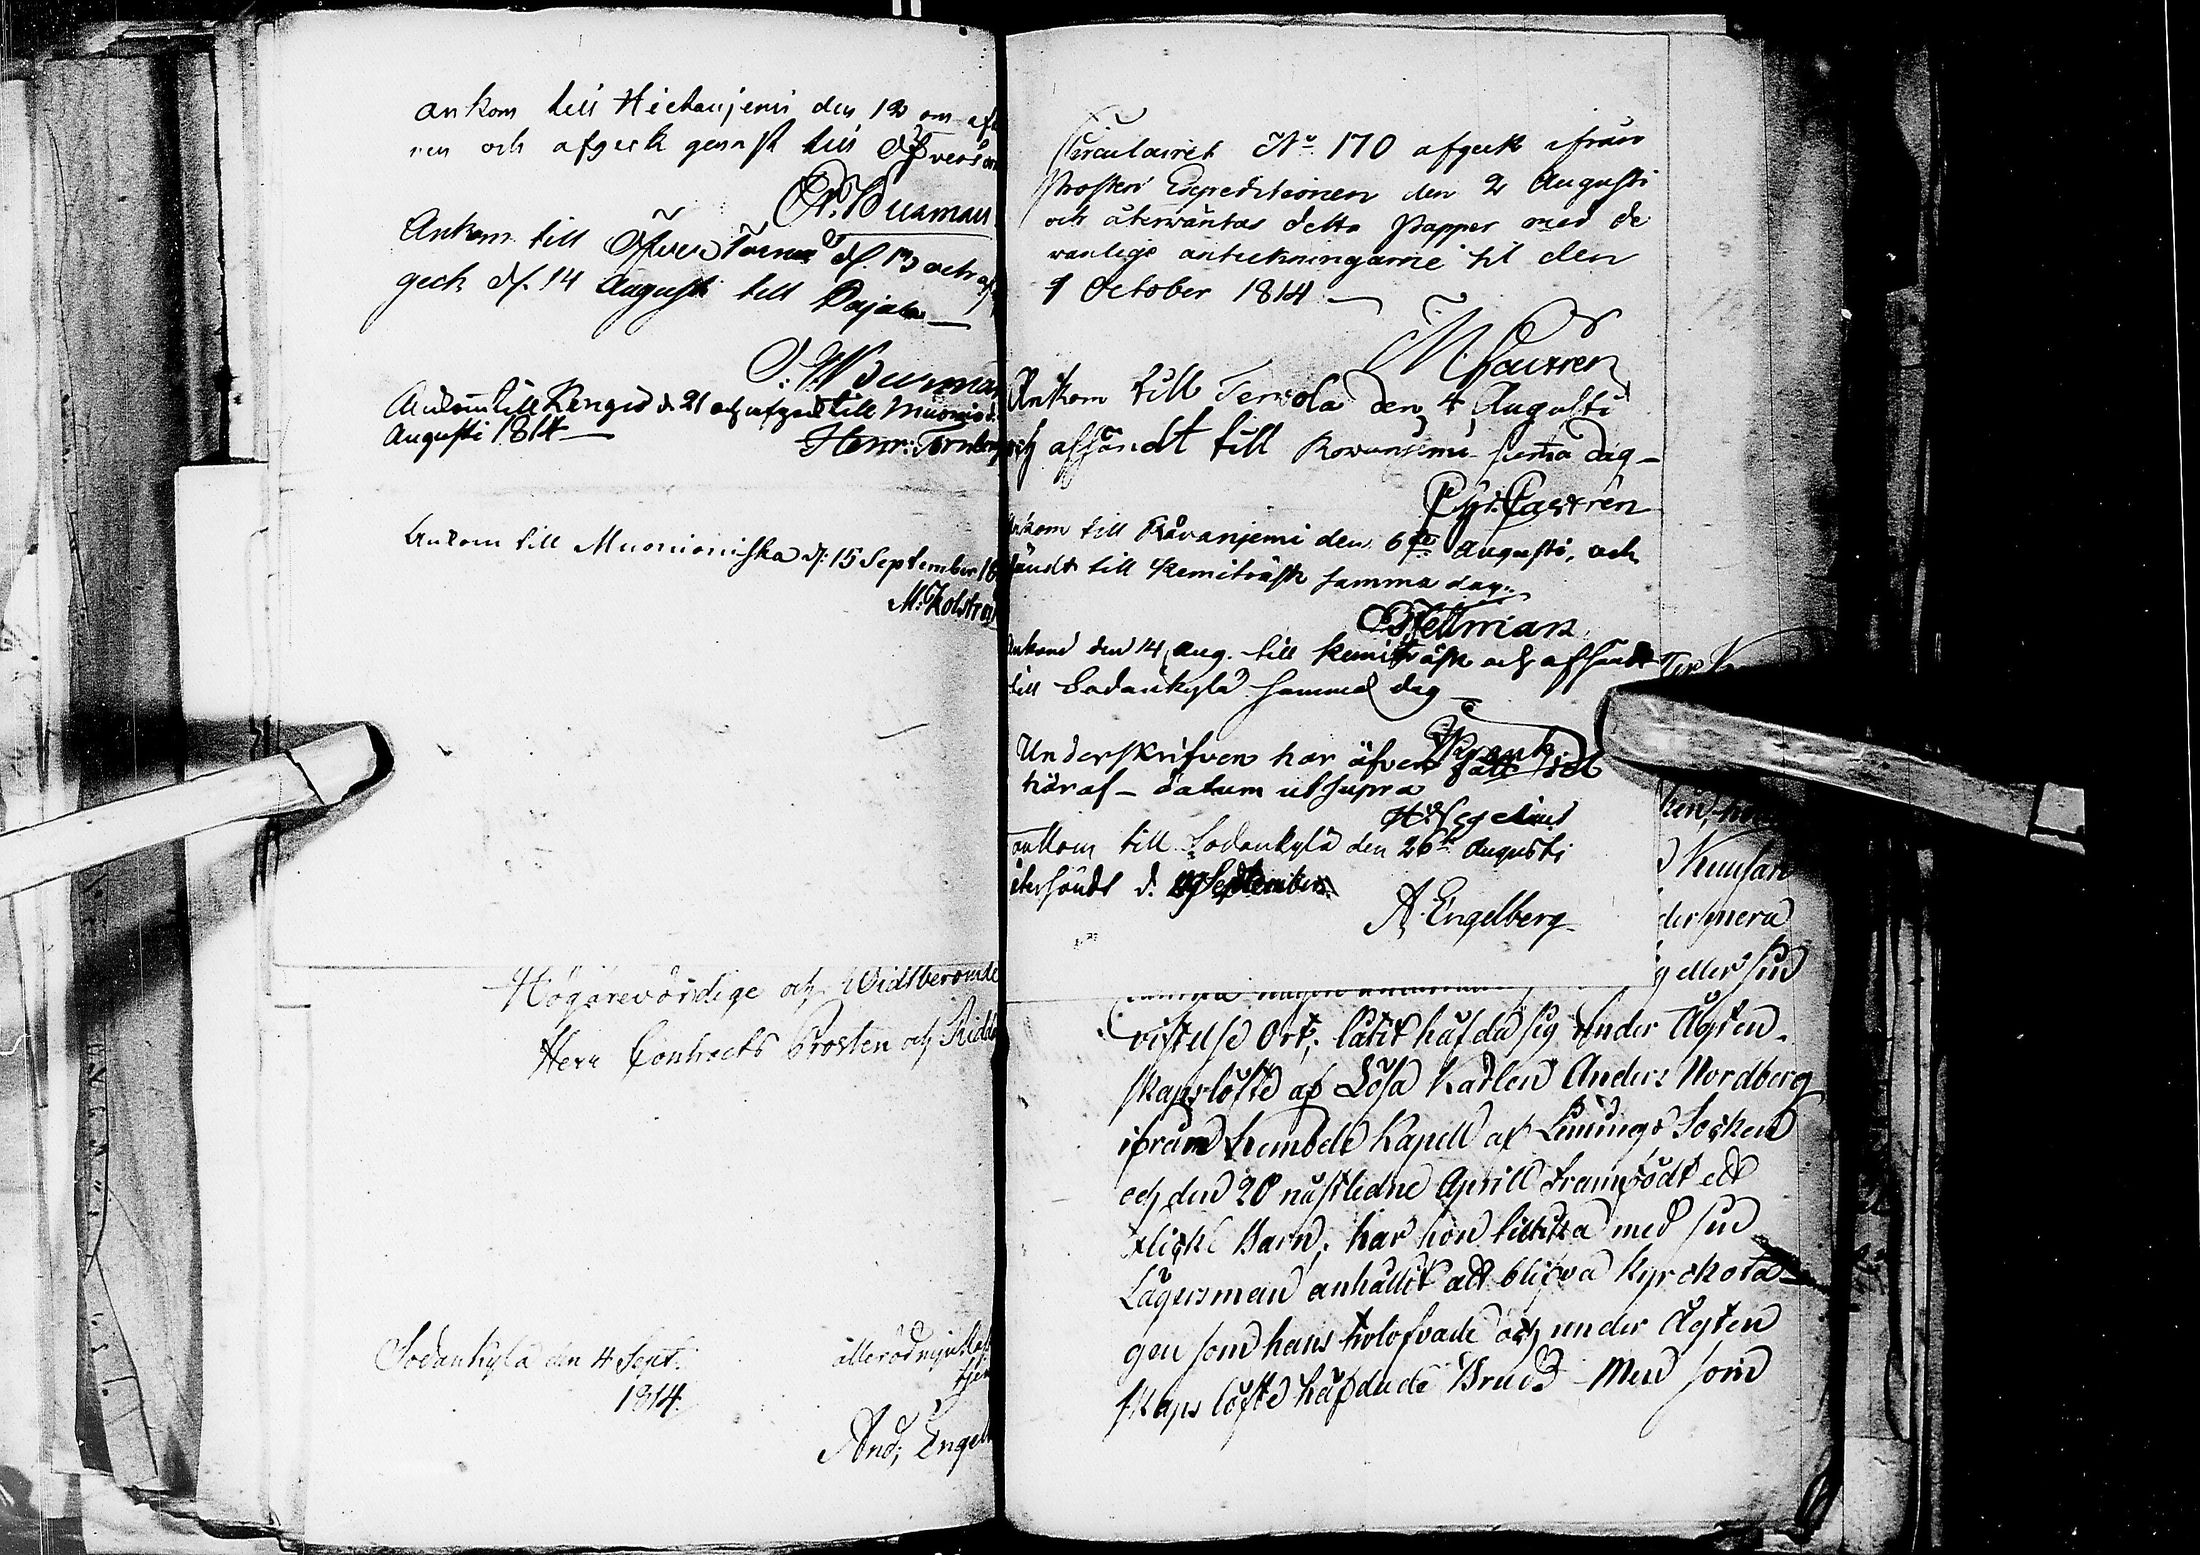 ankom till Hietaniemi den 12 om aft
nen och afgeck genast till Öfver
Ankom till Öfver Torneå d. 13 och af
geck d. 14 August till Pajala
Ankom till Kengis d. 21 och afgeck till Muonio d.
Augusti 1814
Henr: Forn
Ankom till Muonioniska d. 15 September 18
M: Kolströ
Högärevördige och Widtberömde
Herr Contracts Prosten och Ridd
Sodankylä den 4 Sept.
1814
allerödmjukas
tjen
And; Engel
Circulairet No 170 afgeck ifrån
Prosteri Expeditionen den 2 Augusti
och återwäntas detta Papper med de
vanlige anteckningarne til den
1 October 1814
M. Castren
Ankom till Tervola den 4 Augusti
och afsändt till Rovaniemi samma dag
Castrén
Ankom till Råvanjemi den 6te Augusti, och
sändt till Kemiträsk samma dag
Fellman
Ankom den 14 Aug. till Kemiträsk och afsändt
till Sodankylä samma dag
Underskrifven har äfven fått del
häraf - datum ut supra
ankom till Sodankylä den 26te Augusti
återsändt d. September
A. Engelberg
Kuusan
dermera
g eller sin
vistelse Ort; låtit häfda sig under Ägten-
skapslöfte af Lösa Karlen Anders Nordberg
ifrån Kapell af Limingo Socken
och den 20 nästledne Aprill framfödt ett
slikt Barn; har hon tillika med sin
Lägersman anhållit att blifva kyrckota-
gen som hans trolofvade och under Ägten
skaps löfte häfdade Brud - Men som